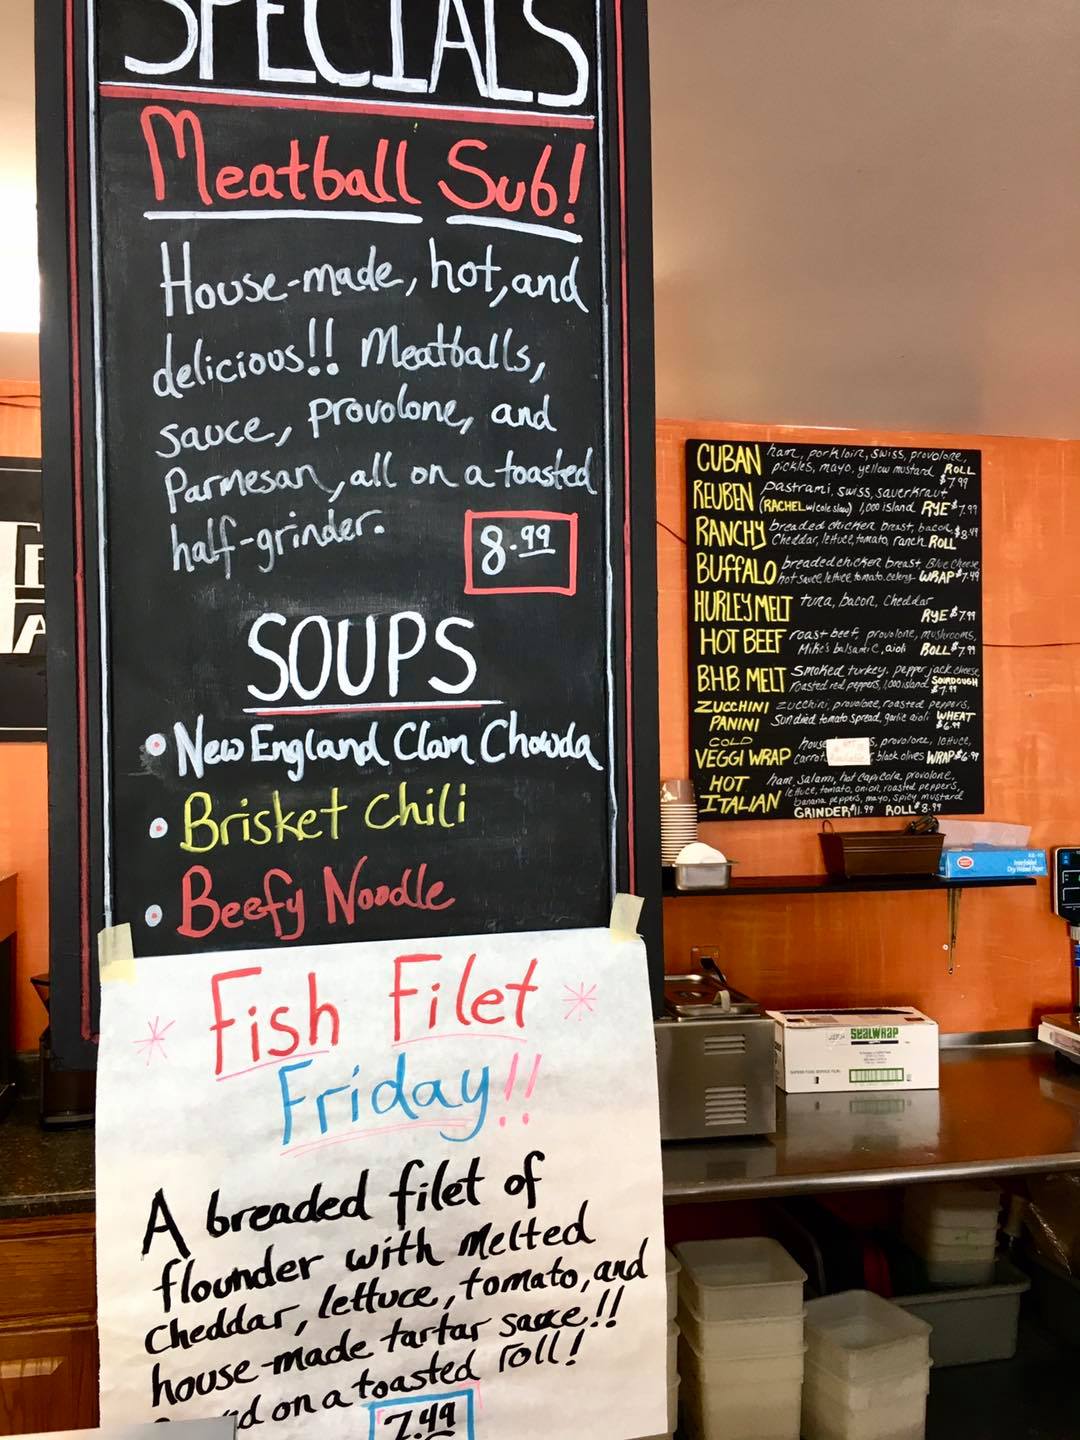 SPECIALS
Meatball Sub!
House-made, hot, and
delicious!! Meatballs,
sauce, provolone, and
Parmesan, all on a toasted
half-grinder.
8.99
SOUPS
• New England Clam Chowda
• Brisket Chili
• Beefy Noodle
Fish Filet
Friday!!
A breaded filet of
flounder with melted
cheddar, lettuce, tomato, and
house-made tartar sauce!!
on a toasted roll!
7.49
CUBAN ham, pork loin, swiss, provolone,
pickles, mayo, yellow mustard ROLL
$7.99
REUBEN pastrami, swiss, sauerkraut
(RACHEL w/cole slaw) 1,000 island RYE $7.99
RANCHY breaded chicken breast, bacon $8.49
Cheddar, lettuce, tomato, ranch ROLL
BUFFALO breaded chicken breast, Blue cheese
hot sauce, lettuce tomato, celery WRAP $7.49
HURLEY MELT tuna, bacon, Cheddar
RYE $7.99
HOT BEEF roast beef, provolone, mushrooms,
Mike's balsamic, aioli ROLL $7.99
B.H.B. MELT Smoked turkey, pepper jack cheese
roasted red peppers, 1,000 island SOURDOUGH
$7.99
ZUCCHINI zucchini, provolone, roasted peppers,
PANINI Sundried tomato spread, garlic aioli WHEAT
$6.99
COLD house provolone, lettuce,
VEGGI WRAP carrot black olives WRAP $6.99
HOT ham, salami, hot capicola, provolone,
ITALIAN lettuce, tomato, onion, roasted peppers,
banana peppers, mayo, spicy mustard
GRINDER $11.99 ROLL $8.99
SEALWRAP
Interfolded
Dry Waxed Paper